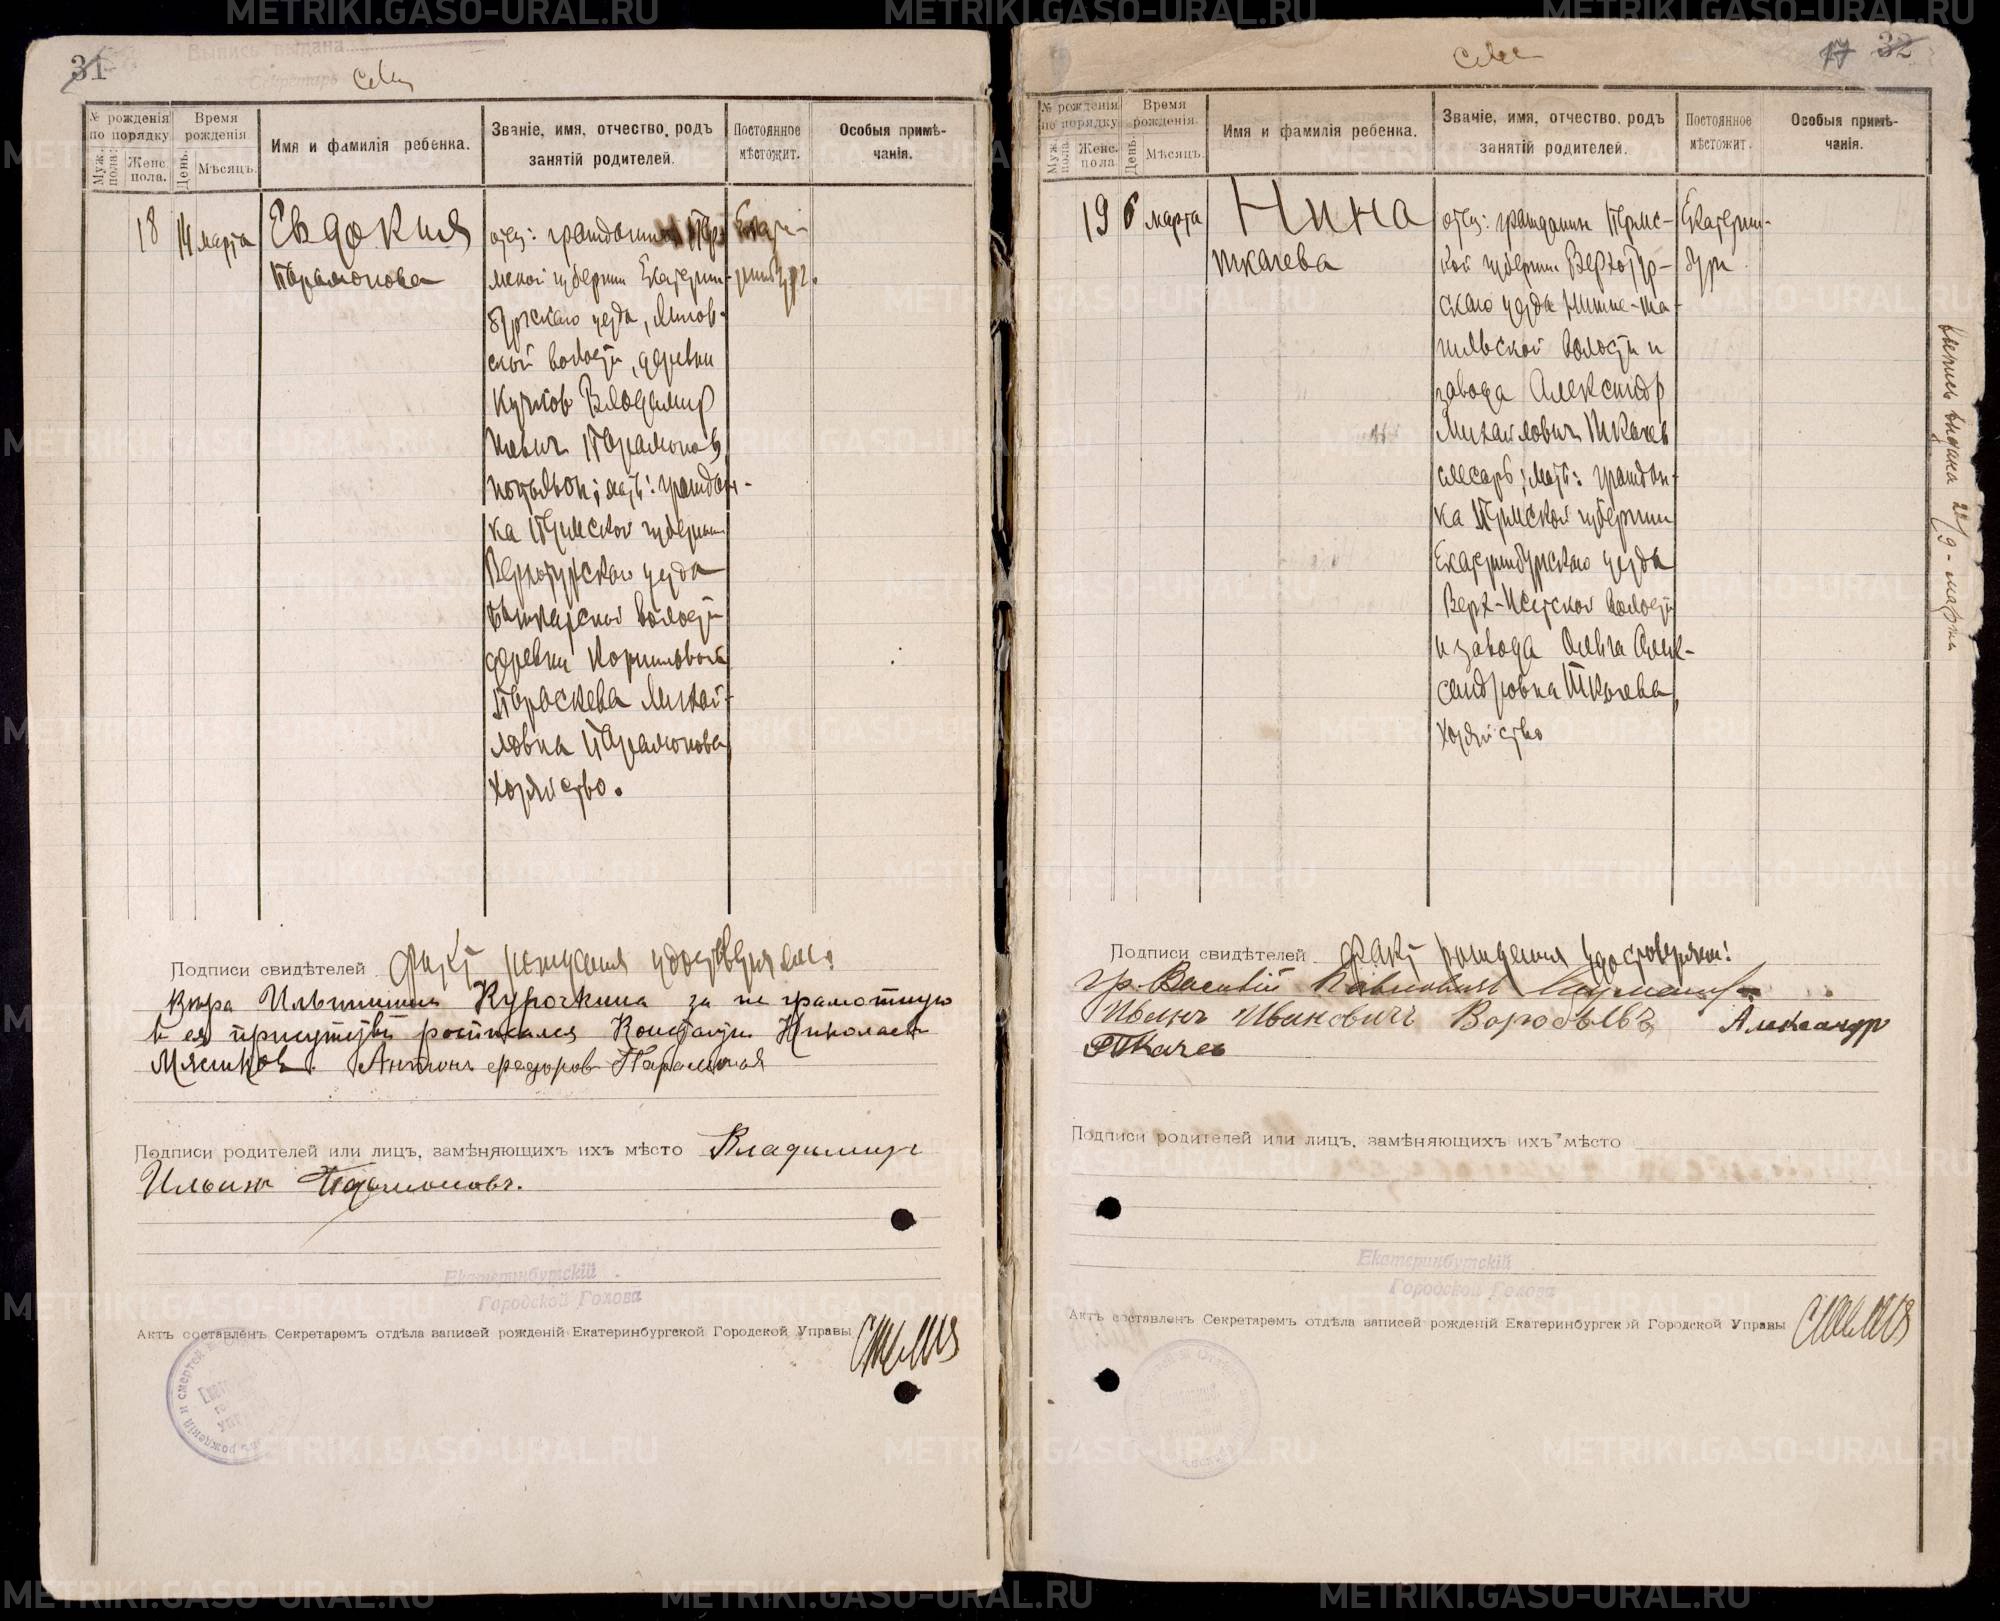 31
Выпись выдана
Секретарь
№ рожденія по порядку
Муж. пола.
Женс. пола.
Время рожденія
День.
Мѣсяцъ.
Имя и фамилія ребенка.
Званіе, имя, отчество, родъ занятій родителей.
Постоянное мѣстожит.
Особыя примѣчанія.
18 14 марта
Евдокия
Парамонова
отец: гражданин Пер
мской губернии Екатерин-
бургскаго уезда,
ской волости, деревни
Владимир
Парамонов,
мать: граждан-
ка Пермской губернии
Верхотурскаго уезда
волости
деревни
Параскева Михай-
ловна Парамонова,
хозяйство.
Екате-
ринбург.
Подписи свидѣтелей Факт рождения удостоверяем:
Курочкина за не грамотную
в ея присутствіи росписался Николаев
Мясников. Антонъ Федоров
Подписи родителей или лицъ, замѣняющихъ ихъ мѣсто Владимиръ
Ильинъ Парамоновъ.
Екатеринбургскій
Городской Голова
Актъ составленъ Секретаремъ отдѣла записей рожденій Екатеринбургской Городской Управы
17 32
№ рожденія по порядку
Муж. пола.
Женс. пола.
Время рожденія.
День.
Мѣсяцъ.
Имя и фамилія ребенка.
Званіе, имя, отчество, родъ занятій родителей.
Постоянное мѣстожит.
Особыя примѣчанія.
19 6 марта
Нина
Ткачева
отец: гражданин Пермс-
кой губернии Верхотур-
скаго уезда Нижне-та-
гильской волости и
завода Александр
Михайлович Ткачев
слесарь; мать: граждан-
ка Пермской губернии
Екатеринбургскаго уезда
Верх-Исетской волости
и завода Ольга Алек-
сандровна Ткачева,
хозяйство
Екатерин-
бург
выпись выдана 22/9 - марта
Подписи свидѣтелей Факт рождения удостоверяем:
гр. Василій Павловичъ
Иванъ Ивановичъ Воробьевъ Александр
Ткачев
Подписи родителей или лицъ, замѣняющихъ ихъ мѣсто
Екатеринбургскій
Городской Голова
Актъ составленъ Секретаремъ отдѣла записей рожденій Екатеринбургской Городской Управы
METRIKI.GASO-URAL.RU